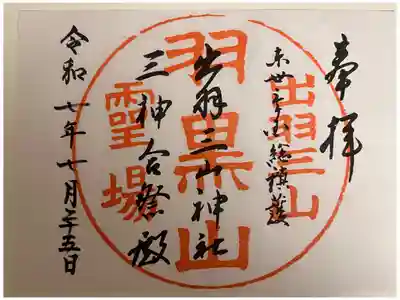 奉拝
出羽三山
羽黒山
靈場
出羽三山神社
三神合祭殿
令和七年七月二十五日